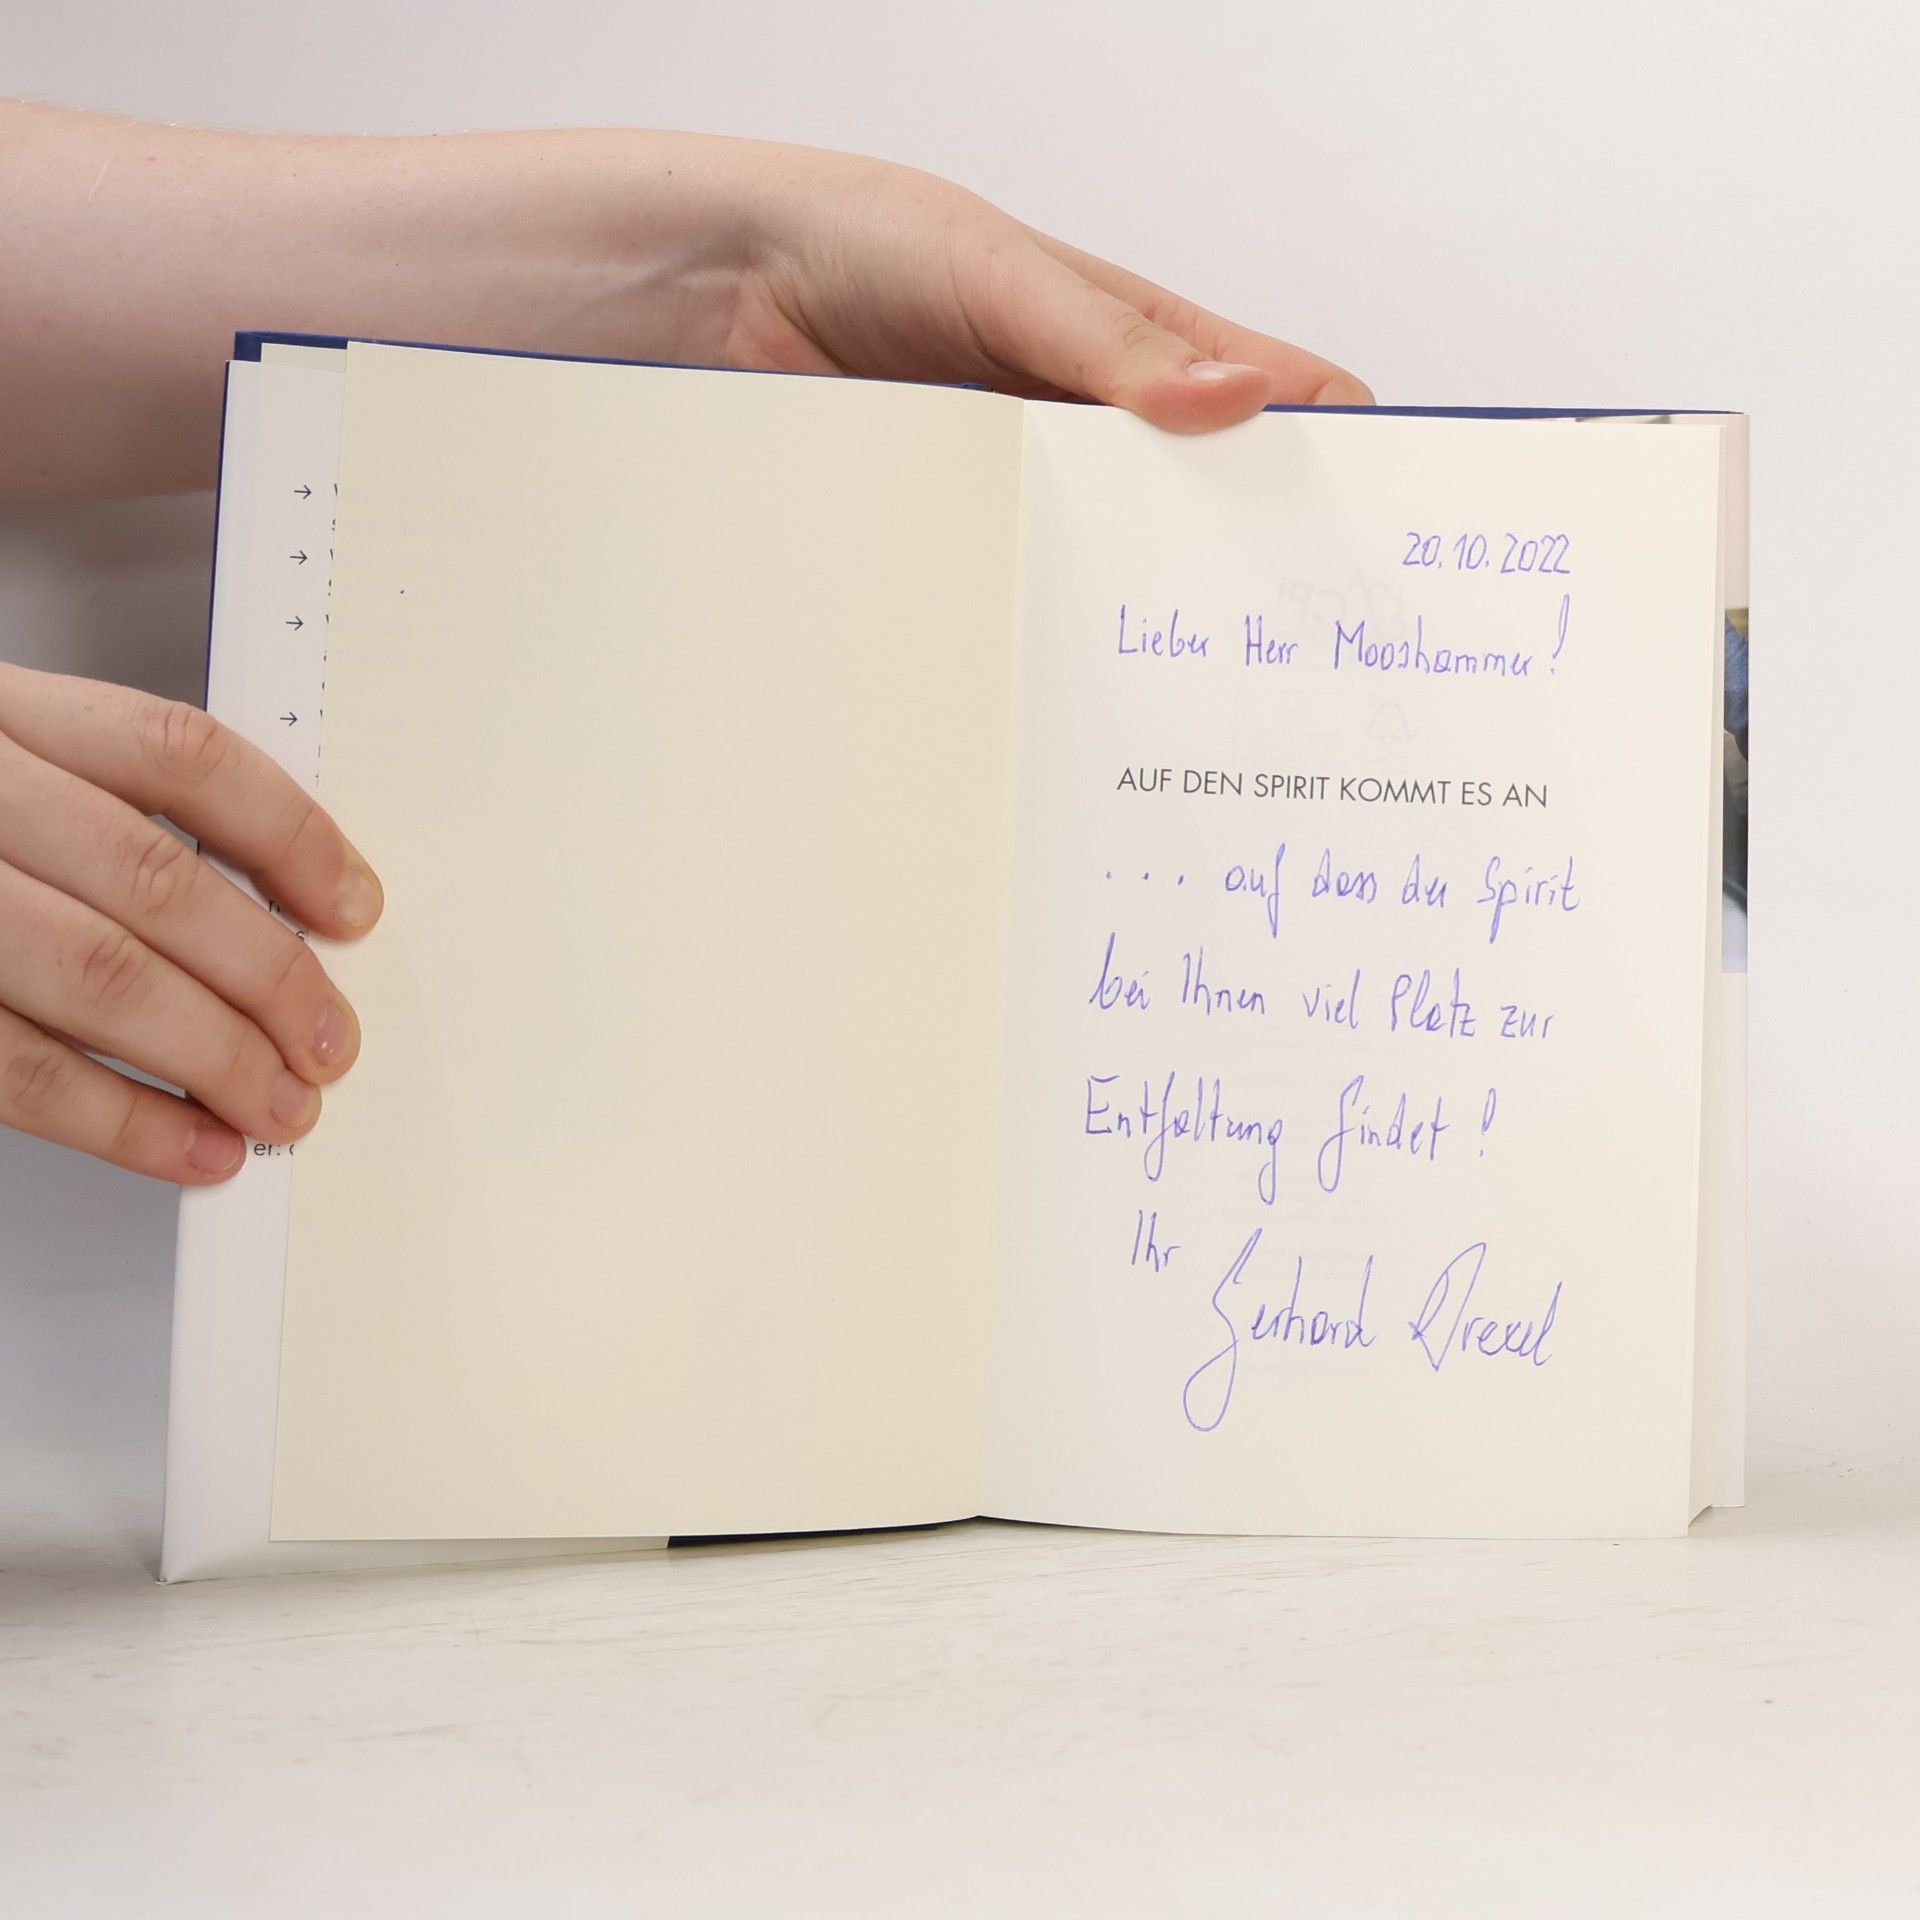 20.10.2022
Lieber Herr Mooshammer!
AUF DEN SPIRIT KOMMT ES AN
... auf dass der Spirit
bei Ihnen viel Platz zur
Entfaltung findet!
Ihr
Gerhard Drexel
→
→
→
→
er: